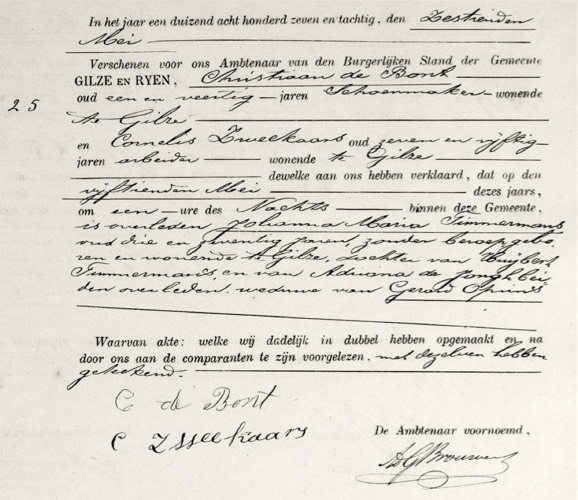 In het jaar een duizend acht honderd zeven en tachtig, den Zestienden
Mei
Verschenen voor ons Ambtenaar van den Burgerlijken Stand der Gemeente
GILZE EN RYEN, Christiaan de Bont
25
oud een en veertig jaren Schoenmaker wonende
te Gilze
en Cornelis Zweekaars oud zeven en vijftig
jaren arbeider wonende te Gilze
dewelke aan ons hebben verklaard, dat op den
vijftienden Mei dezes jaars,
om een ure des Nachts binnen deze Gemeente,
is overleden Johanna Maria Timmermans
oud drie en zwentig jaren, zonder beroep, gebo
ren en wonende te Gilze, dochter van Huijbert
Timmermans, en van Adriana de Jongh bei
den overleden. weduwe van Gerard
Waarvan akte: welke wij dadelijk in dubbel hebben opgemaakt en na
door ons aan de comparanten te zijn voorgelezen, met dezelven hebben
geteekend.
C de Bont
C Zweekaars
De Ambtenaar voornoemd,
Brouwers